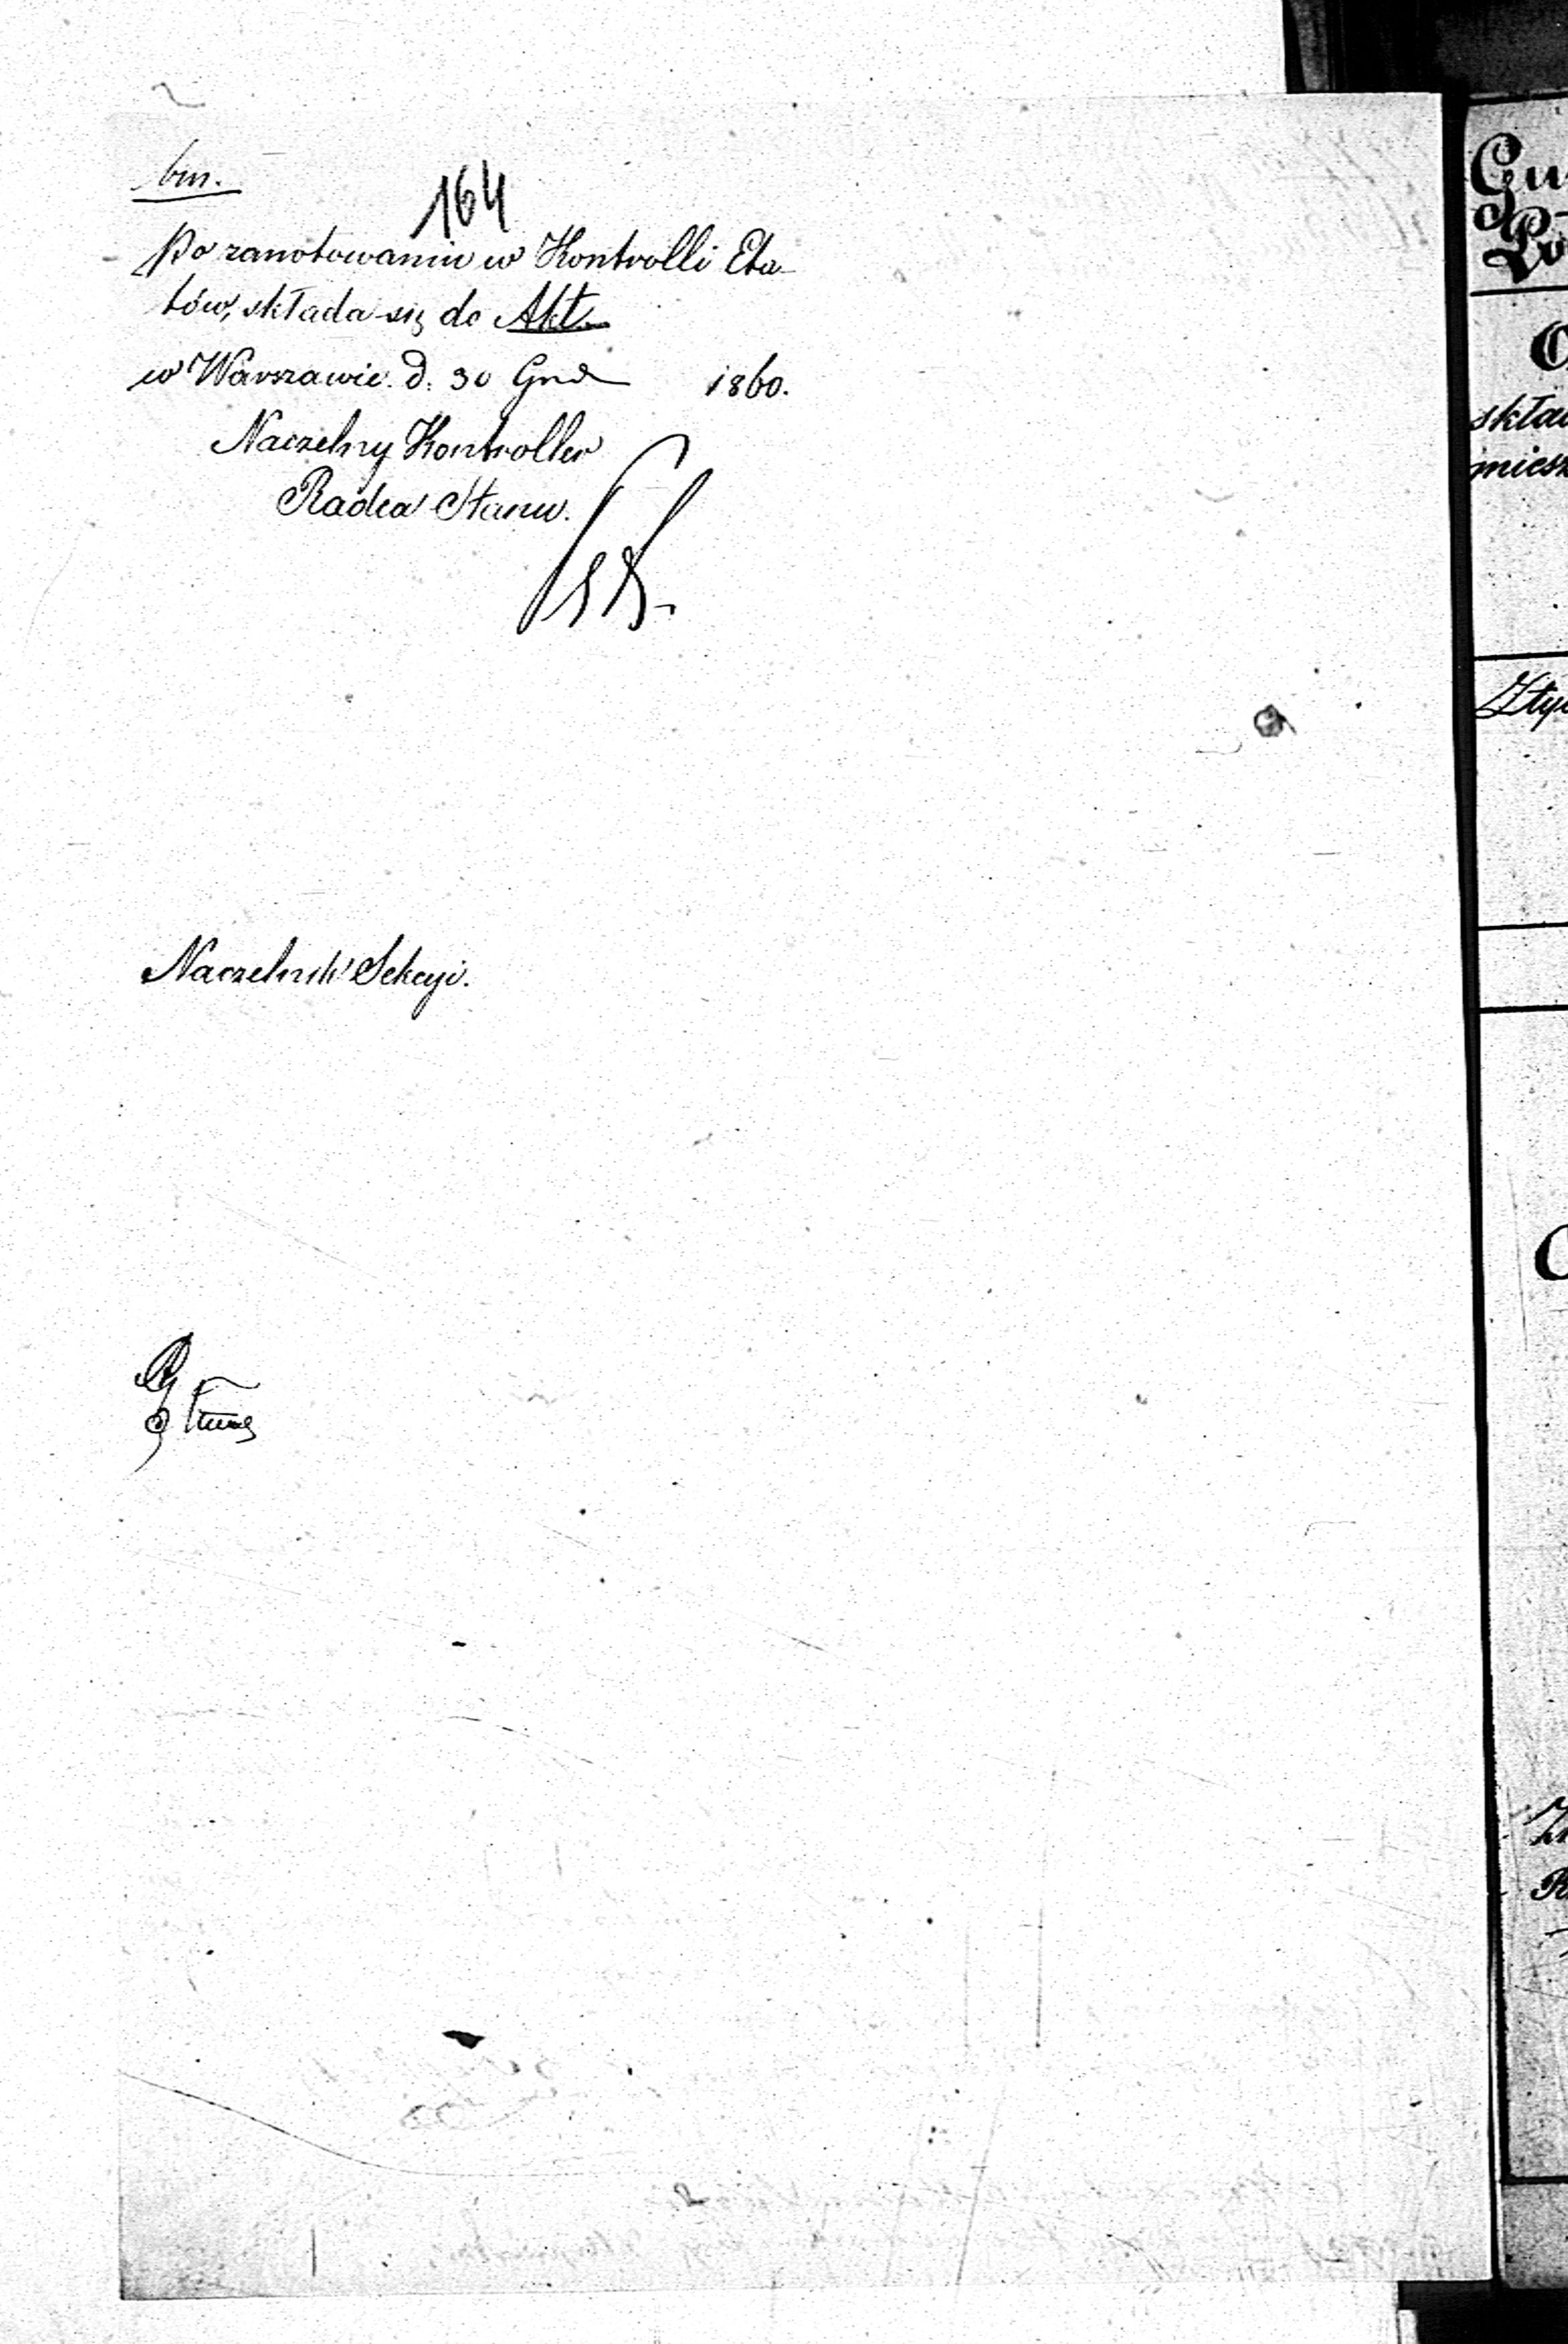 bm.
164
Po zanotowaniu w Kontrolli Eta-
tów, składa się do Akt.
w Warszawie d. 30 Grud 1860.
Naczelny Kontroller
Radca Stanu.
Naczelnik Sekcyi.
Gu
Po
O
skła
miesz
Zty